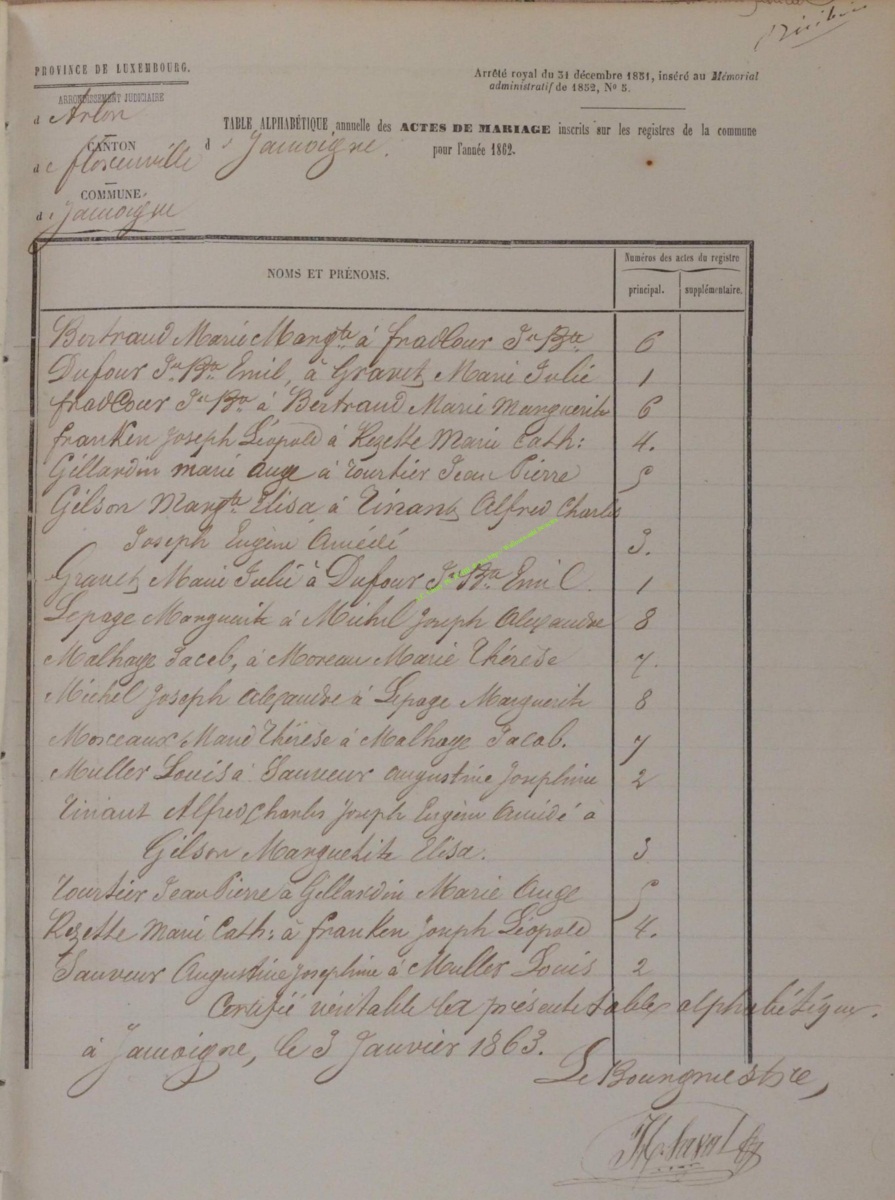 PROVINCE DE LUXEMBOURG.
Arrêté royal du 31 décembre 1831, inséré au Mémorial
administratif de 1832, No 5.
ARRONDISSEMENT JUDICIAIRE
d'Arlon
CANTON
de florenville
COMMUNE
de Jamoigne
TABLE ALPHABÉTIQUE annuelle des ACTES DE MARIAGE inscrits sur les registres de la commune
de Jamoigne. pour l'année 1862.
NOMS ET PRÉNOMS.
Numéros des actes du registre
principal. supplémentaire.
Bertraud Marie Margte à fradcour Jn Bte 6
Dufour Jn Bte Emil, à Gravet Marie Julie 1
fradcour Jn Bte à Bertraud Marie Marguerite 6
franken Joseph Léopold à Rezette Marie Cath: 4.
Gillardin marie Ange à Tourtier Jean Pierre 5
Gilson Margte Elisa à Tinant Alfred Charles
Joseph Eugène Amédé 3.
Gravet Marie Julie à Dufour Jn Bte Emil. 1
Lepage Marguerite à Michel Joseph Alexandre 8
Malhage Jacob, à Moreau Marie Thérèse 7.
Michel Joseph Alexandre à Lepage Marguerite 8
Morceaux Marie Thérèse à Malhage Jacob. 7
Muller Louis à Sauveur Augustine Josephine 2
Tinant Alfred Charles Joseph Eugène Amédé à
Gilson Marguerite Elisa. 3
Tourtier Jean Pierre à Gillardin Marie Ange 5
Rezette Marie Cath: à franken Joseph Léopold 4.
Sauveur Augustine Josephine à Muller Louis 2
Certifié véritable la présente table alphabétique.
à Jamoigne, le 3 Janvier 1863.
Le Bourgmestre,